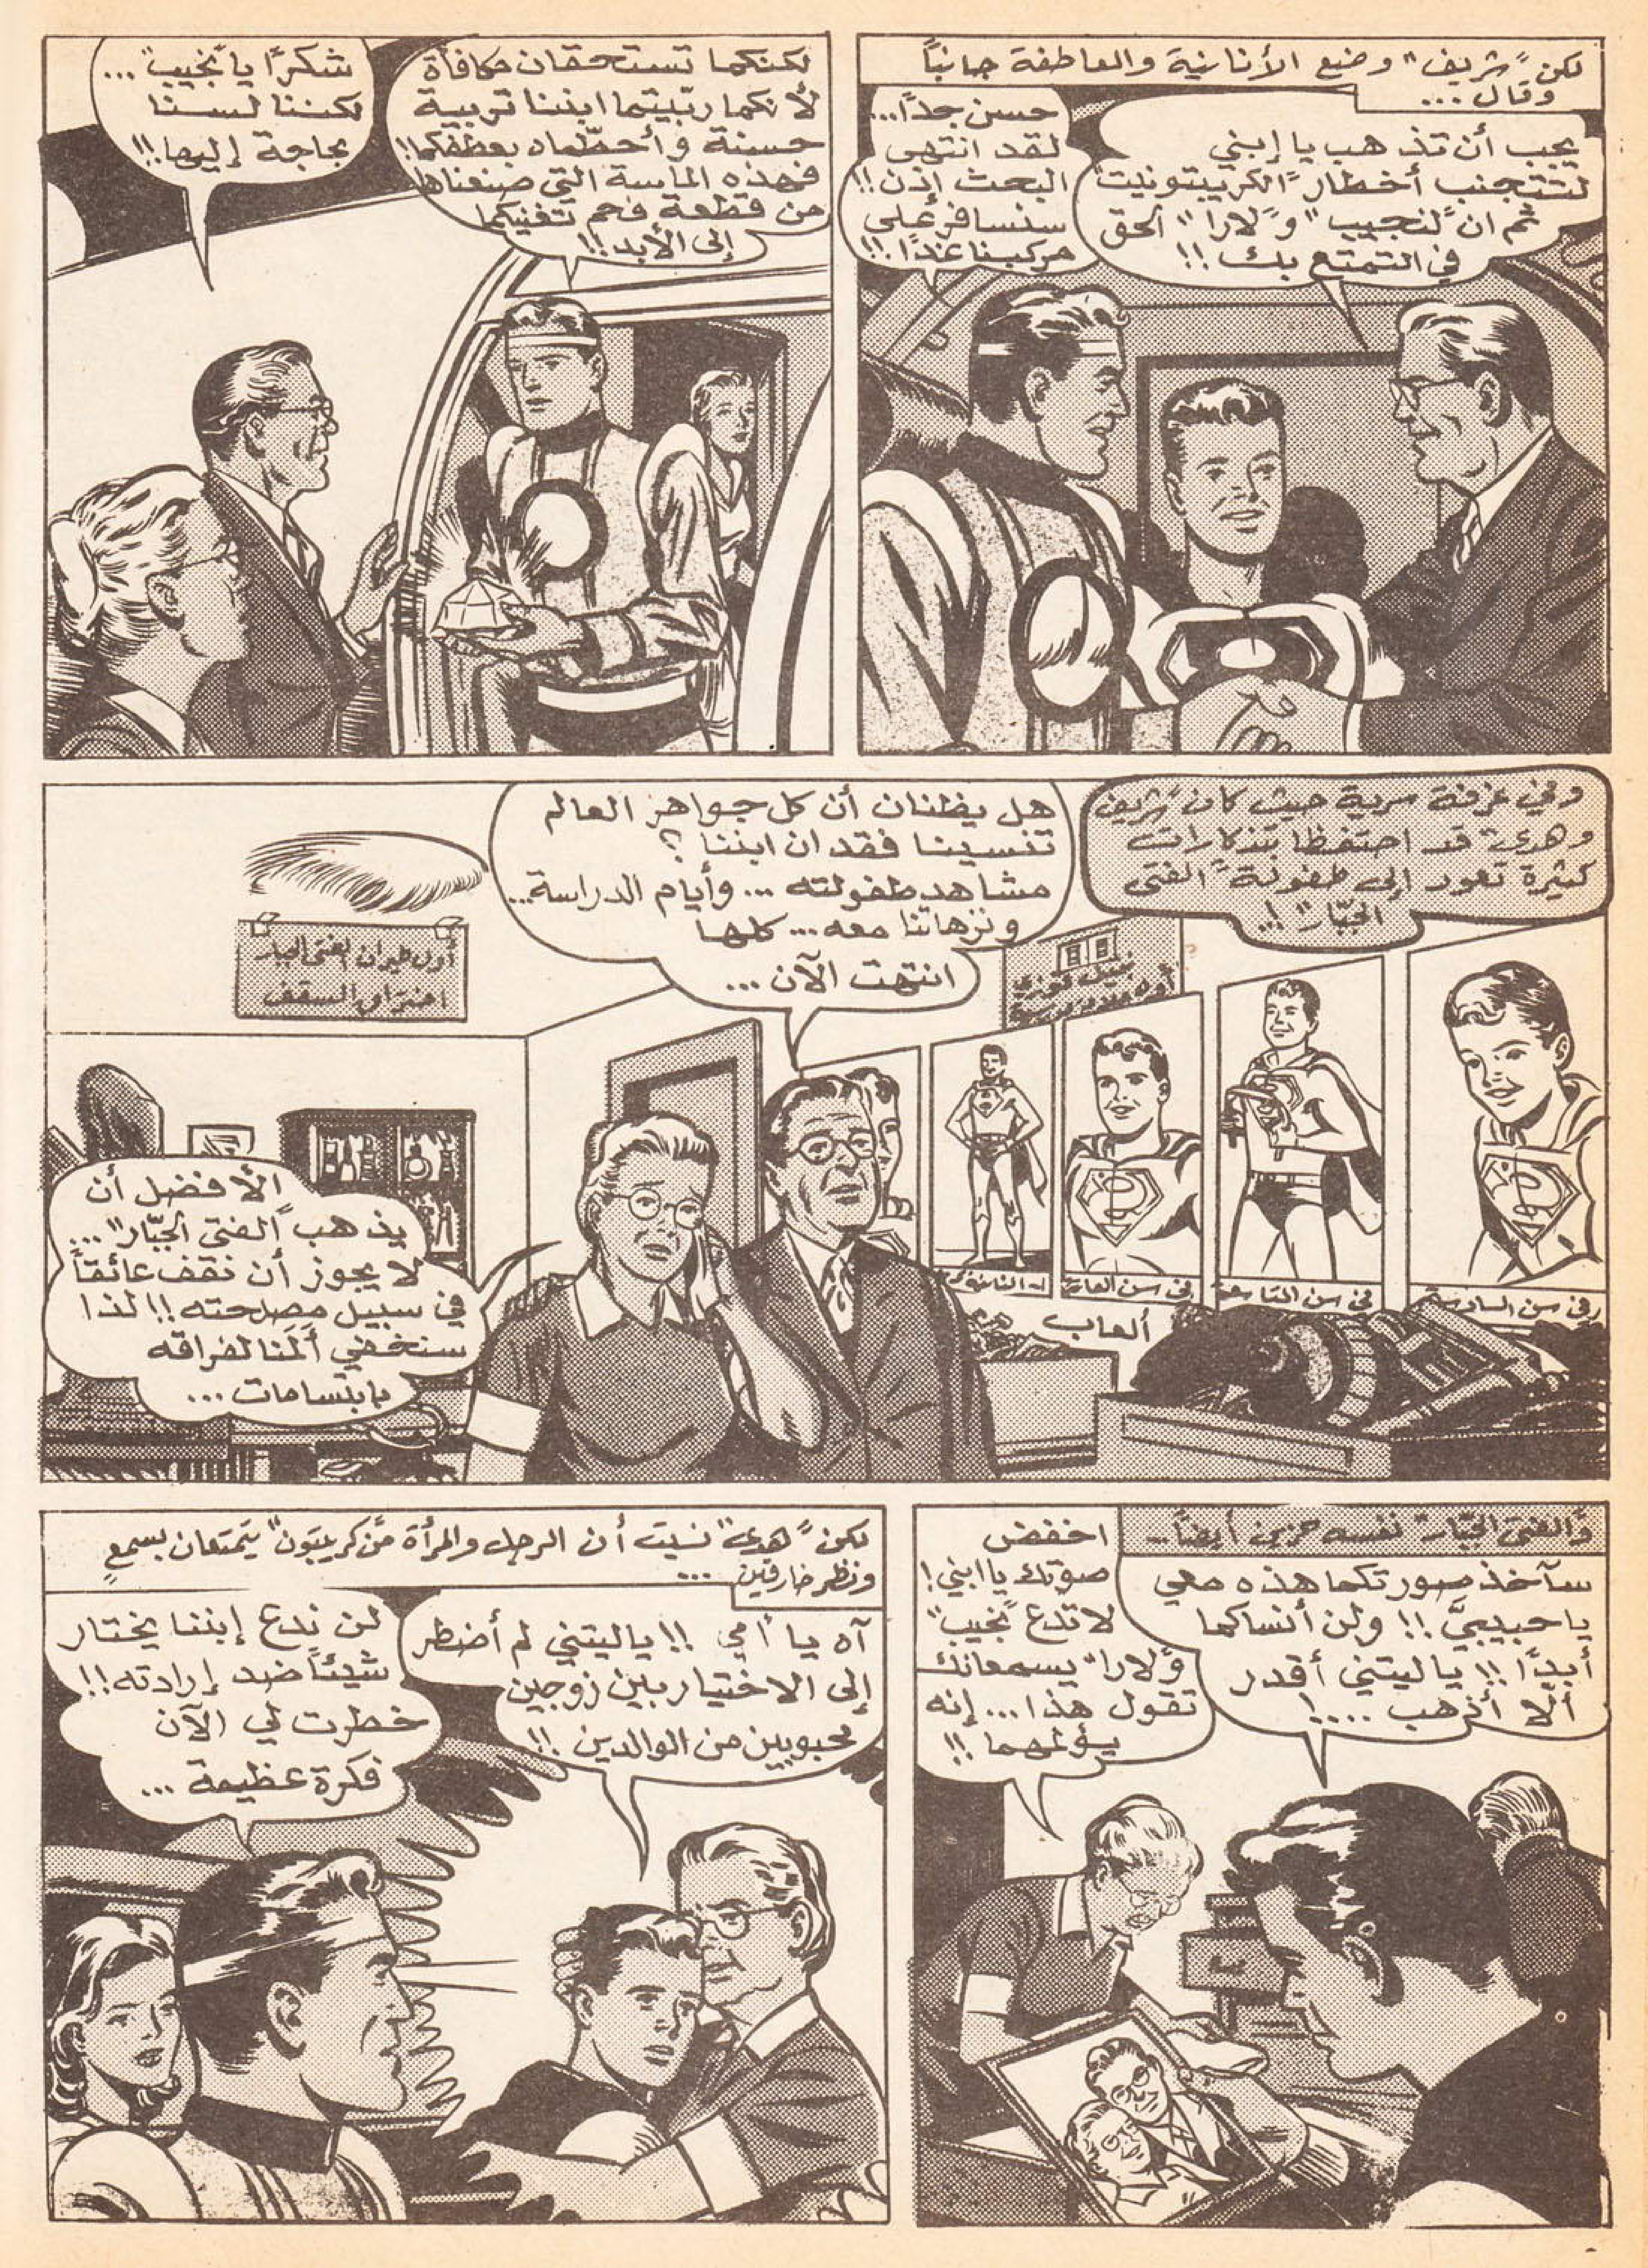 لكن "شريف" وضع الأنانية والعاطفة جانباً
وقال...
يجب أن تذهب يا إبني
لتتجنب أخطار "الكريبتونيت"
ثم ان "لنجيب" و"لارا" الحق
في التمتع بك!!
حسن جداً...
لقد انتهى
البحث إذن!!
سنسافر على
مركبنا غداً!!
لكنكما تستحقان مكافأة
لأنكما ربّيتما ابننا تربية
حسنة وأحطتماه بعطفكما!!
فهذه الماسة التي صنعناها
من قطعة فحم تغنيكما
إلى الأبد!!
شكراً يا "نجيب"...
لكننا لسنا
بحاجة إليها!!
وفي غرفة سرية حيث كان "شريف"
و"هدى" قد احتفظا بتذكارات
كثيرة تعود إلى طفولة "الفتى
الجبّار"!..
هل يظنان أن كل جواهر العالم
تنسينا فقدان ابننا؟
مشاهد طفولته... وأيام الدراسة...
ونزهاتنا معه... كلها
انتهت الآن...
أول طيران الفتى الجبار
اختراق السقف
نبيل فوزي
في سن السادسة
في سن التاسعة
في سن العاشرة
ألعاب
الأفضل أن
يذهب "الفتى الجبّار"...
لا يجوز أن نقف عائقاً
في سبيل مصلحته!! لذا
سنخفي ألمنا لفراقه
بابتسامات...
و"الفتى الجبّار" نفسه حزين أيضاً..
سآخذ صورتكما هذه معي
يا حبيبيَّ!! ولن أنساكما
أبداً!! يا ليتني أقدر
ألا أذهب....!
اخفض
صوتك يا ابني!
لا تدع "نجيب"
و"لارا" يسمعانك
تقول هذا... إنه
يؤلمهما!!
لكن "هدى" نسيت أن الرجل والمرأة من "كريبتون" يتمتعان بسمعٍ
ونظر خارقين...
آه يا أمي!! يا ليتني لم أضطر
إلى الاختيار بين زوجين
محبوبين من الوالدين!!
لن ندع إبننا يختار
شيئاً ضد إرادته!!
خطرت لي الآن
فكرة عظيمة...